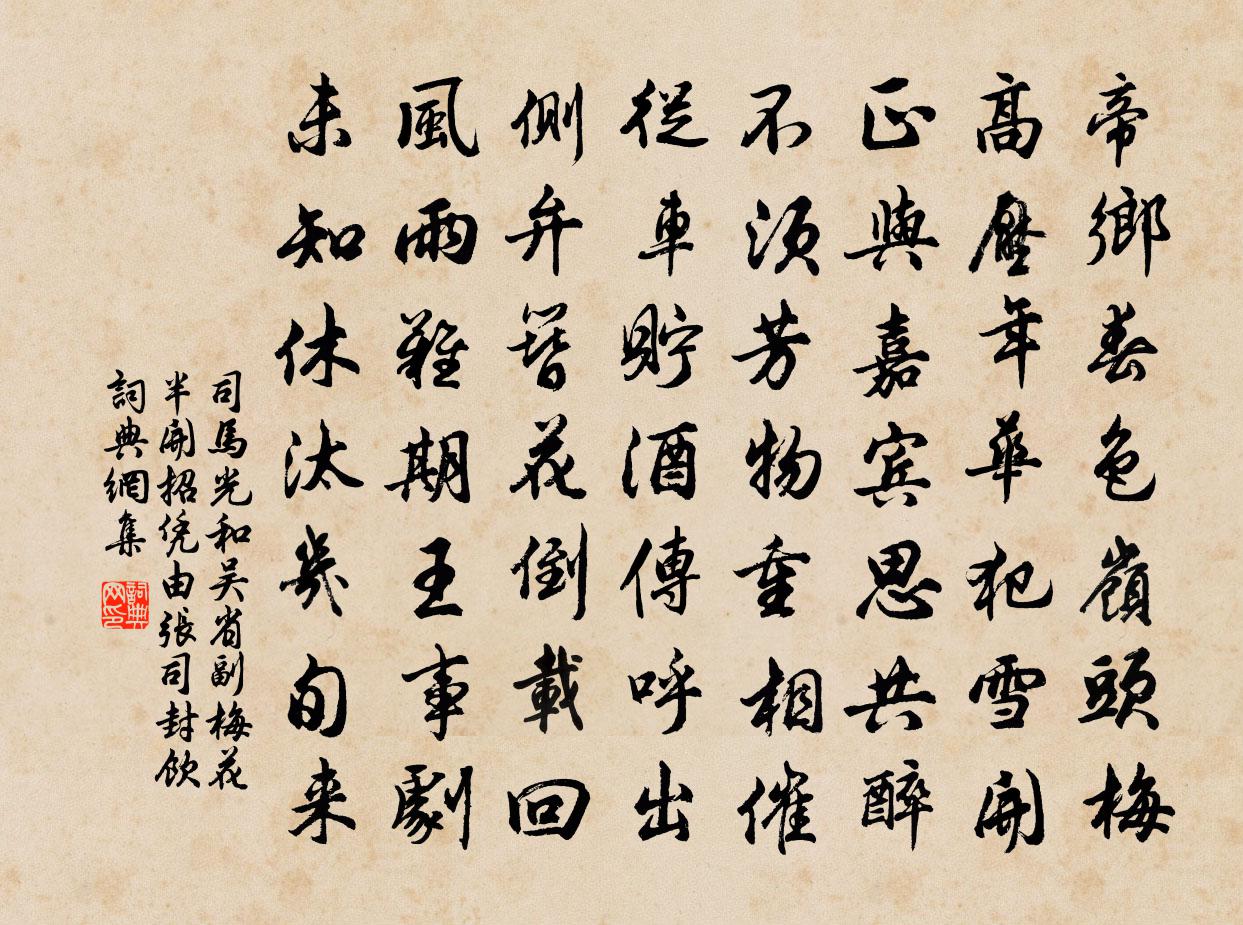 帝鄉春色嶺頭梅
高壓年華犯雪開
正與嘉賓思共醉
不須芳物重相催
從車貯酒傳呼出
側弁簪花倒載回
風雨難期王事劇
未知休汰幾旬来
司馬光和吴省副梅花
半開招凭由張司封飲
詞典網集
詞典网印